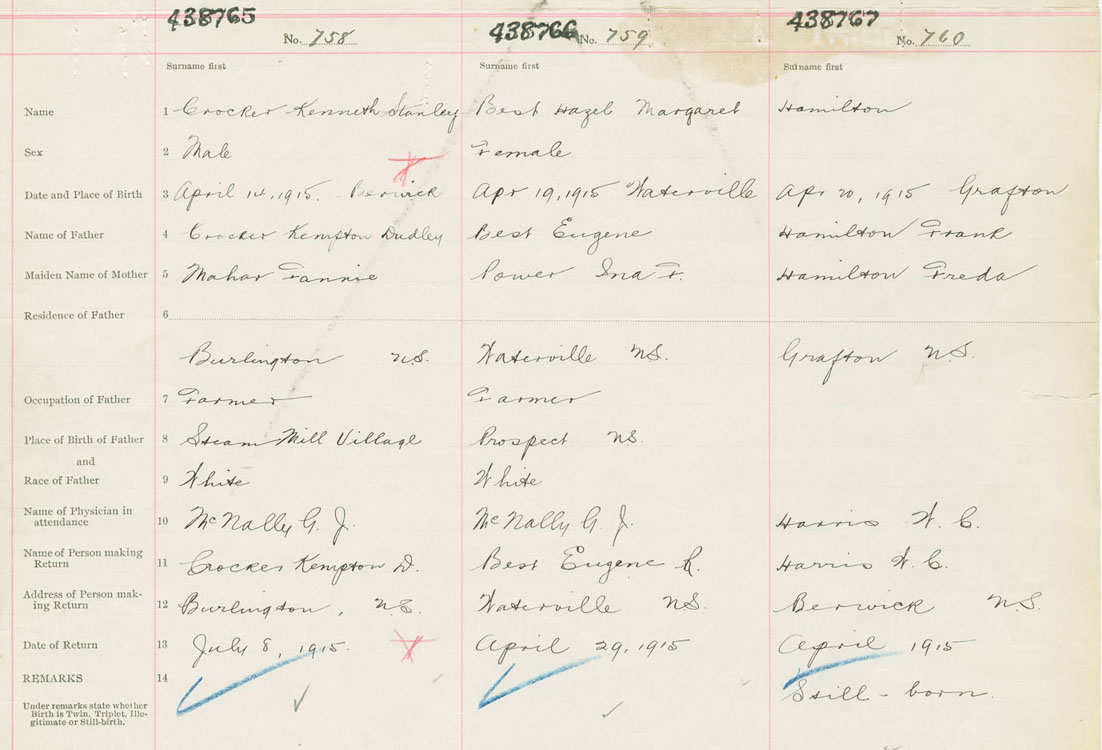 438765 438766 438767
No. 758 No. 759 No. 760
Surname first Surname first Surname first
Name 1 Crocker Kenneth Stanley Best Hazel Margaret Hamilton
Sex 2 Male Female
Date and Place of Birth 3 April 14, 1915. Berwick Apr 19, 1915 Waterville Apr 20, 1915 Grafton
Name of Father 4 Crocker Kempton Dudley Best Eugene Hamilton Frank
Maiden Name of Mother 5 Mahar Fannie Power Ina F. Hamilton Freda
Residence of Father 6
Burlington N.S. Waterville N.S. Grafton N.S.
Occupation of Father 7 Farmer Farmer
Place of Birth of Father 8 Steam Mill Village Prospect N.S.
and
Race of Father 9 White White
Name of Physician in
attendance 10 McNally G. J. McNally G. J. Harris W. C.
Name of Person making
Return 11 Crocker Kempton D. Best Eugene R. Harris W. C.
Address of Person mak-
ing Return 12 Burlington, N.S. Waterville N.S. Berwick N.S.
Date of Return 13 July 8, 1915. April 29, 1915 April 1915
REMARKS 14
Still-born.
Under remarks state whether
Birth is Twin, Triplet, Ille-
gitimate or Still-birth.